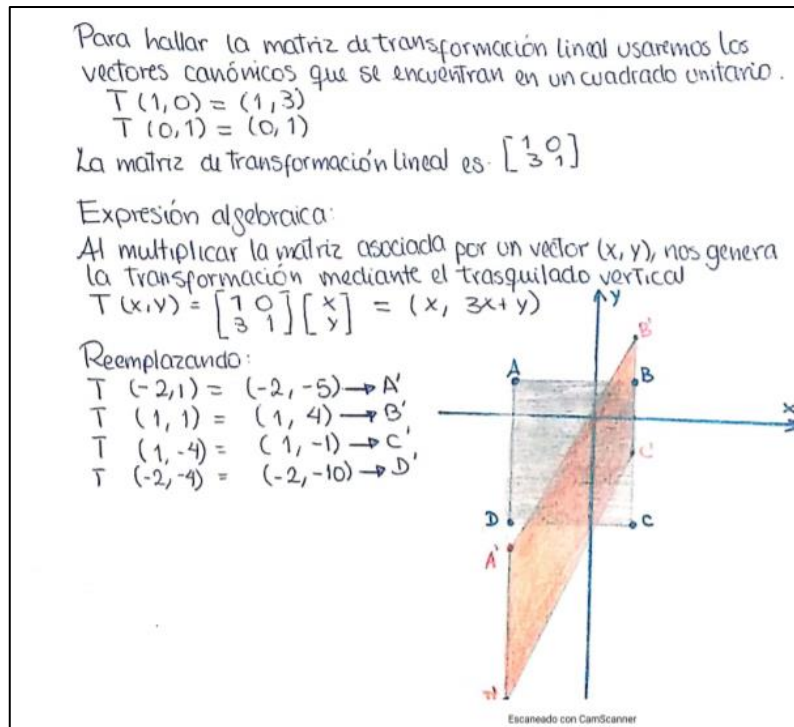 Para hallar la matriz de transformación lineal usaremos los
vectores canónicos que se encuentran en un cuadrado unitario.
T (1,0) = (1,3)
T (0,1) = (0,1)
La matriz de transformación lineal es. [1 0
3 1]
Expresión algebraica:
Al multiplicar la matriz asociada por un vector (x, y), nos genera
la transformación mediante el trasquilado vertical
T (x,y) = [1 0
3 1] [x
y] = (x, 3x+y)
Reemplazando:
T (-2,1) = (-2, -5) → A'
T (1, 1) = (1, 4) → B'
T (1, -4) = (1, -1) → C'
T (-2,-4) = (-2, -10) → D'
Y
B'
A
B
X
C'
D
C
A'
D'
Escaneado con CamScanner